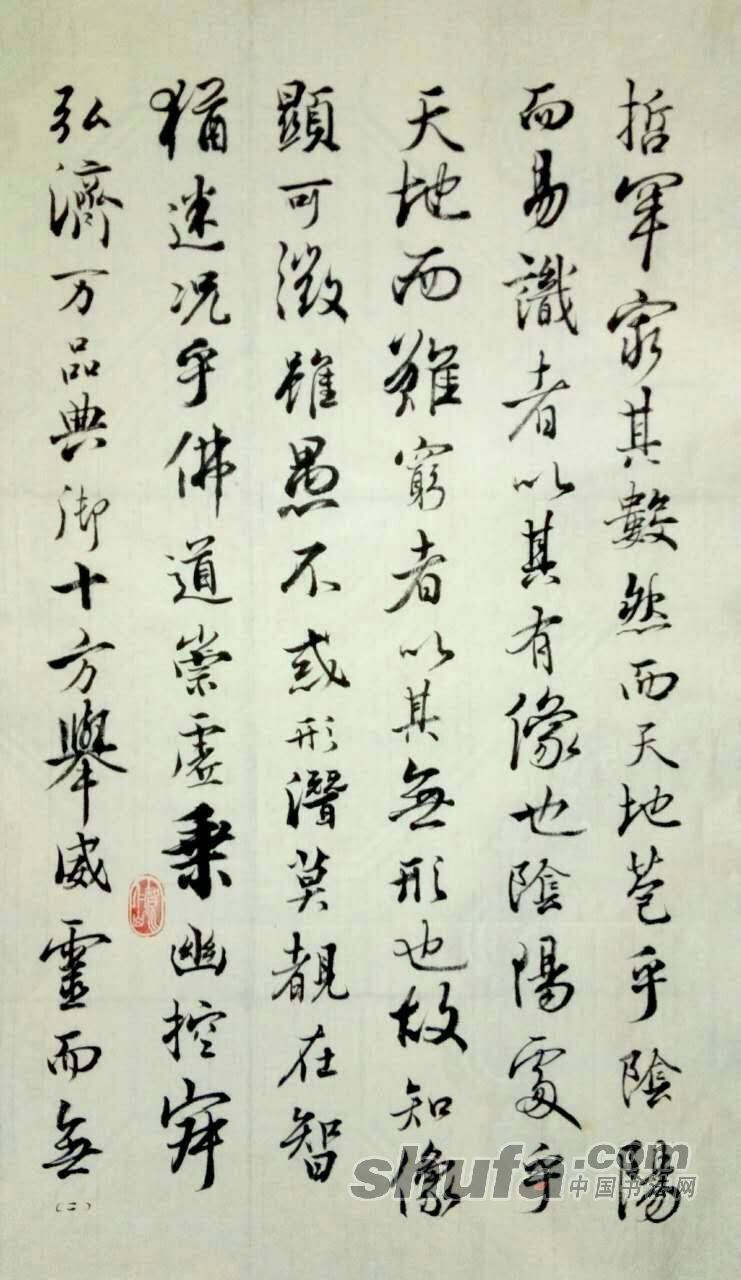 哲罕窮其數然而天地苞乎陰陽
而易識者以其有像也陰陽處乎
天地而難窮者以其無形也故知像
顯可徵雖愚不惑形潛莫覩在智
猶迷况乎佛道崇虛乗幽控寂
弘濟万品典御十方舉威靈而無
(二)
shufa.com
中国书法网